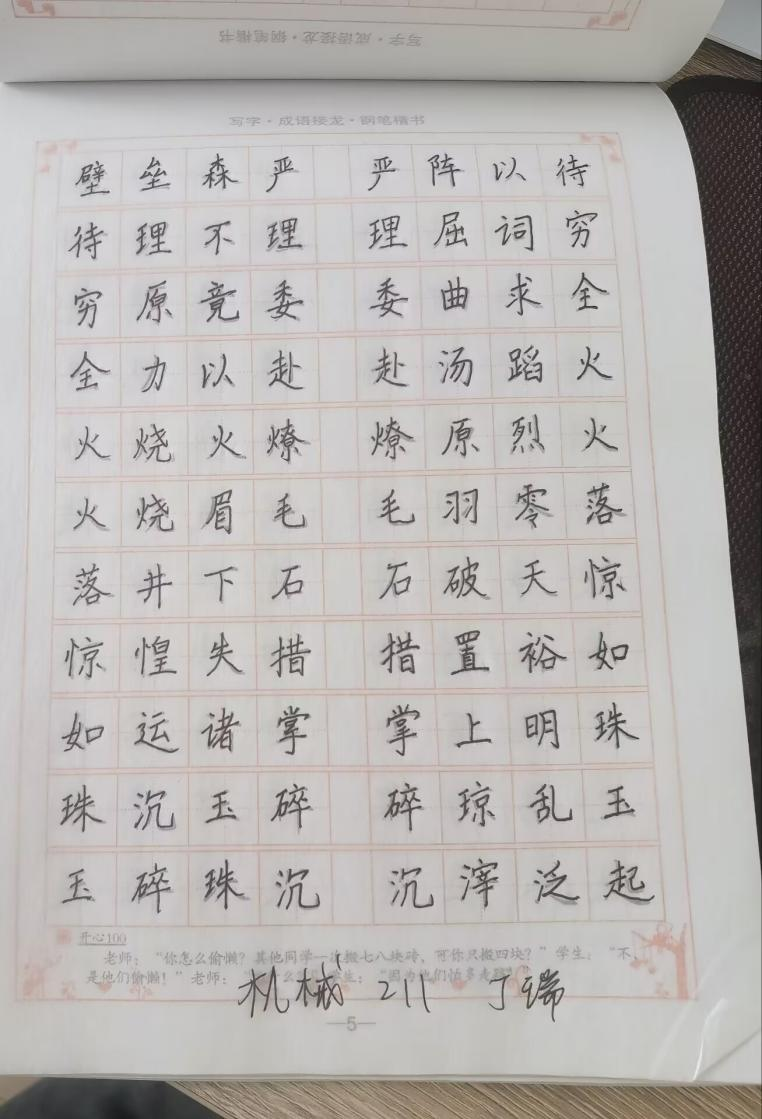 写字·成语接龙·钢笔楷书
写字·成语接龙·钢笔楷书
壁垒森严 严阵以待
待理不理 理屈词穷
穷原竟委 委曲求全
全力以赴 赴汤蹈火
火烧火燎 燎原烈火
火烧眉毛 毛羽零落
落井下石 石破天惊
惊惶失措 措置裕如
如运诸掌 掌上明珠
珠沉玉碎 碎琼乱玉
玉碎珠沉 沉滓泛起
开心100
老师：“你怎么偷懒？其他同学一次搬七八块砖，可你只搬四块？”学生：“不，
是他们偷懒！”老师：“ 学生：“因为他们怕多走
机械 211 丁瑞
5